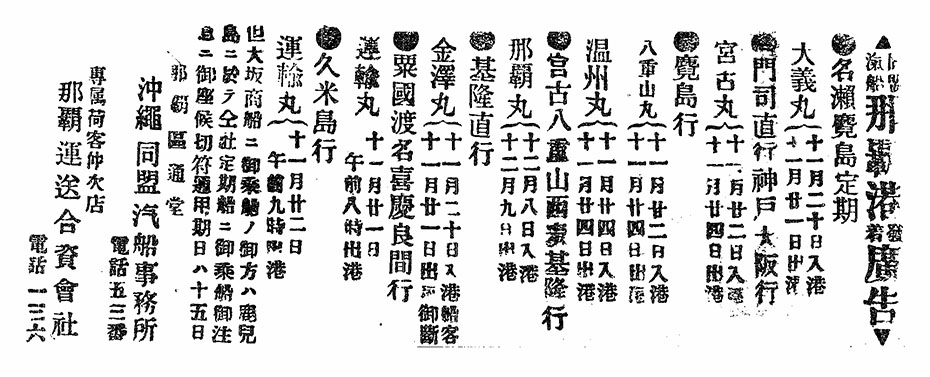 ▲汽船那覇港發着廣告▼
●名瀬覽島定期
大義丸 十一月二十日入港
十一月廿一日出港
●門司直行神戸大阪行
宮古丸 十一月廿二日入港
十一月廿四日出港
●覽島行
八重山丸 十一月廿二日入港
十一月廿四日出港
温州丸 十一月廿四日入港
十一月廿四日出港
●宮古八重山西表基隆行
那覇丸 十二月八日入港
十二月九日出港
●基隆直行
金澤丸 十一月二十日入港船客
十一月廿一日出港御斷
●粟國渡名喜慶良間行
運輸丸 十一月廿一日
午前八時出港
●久米島行
運輸丸 十一月廿二日
午前九時出港
但大坂商船ニ御乘船ノ御方ハ鹿兒
島ニ於テ仝社定期船ニ御乘船御注
意ニ御座候切符通用期日ハ十五日
那覇區通堂
沖繩同盟汽船事務所
電話五三番
專属荷客仲次店
那覇運送合資會社
電話一三六